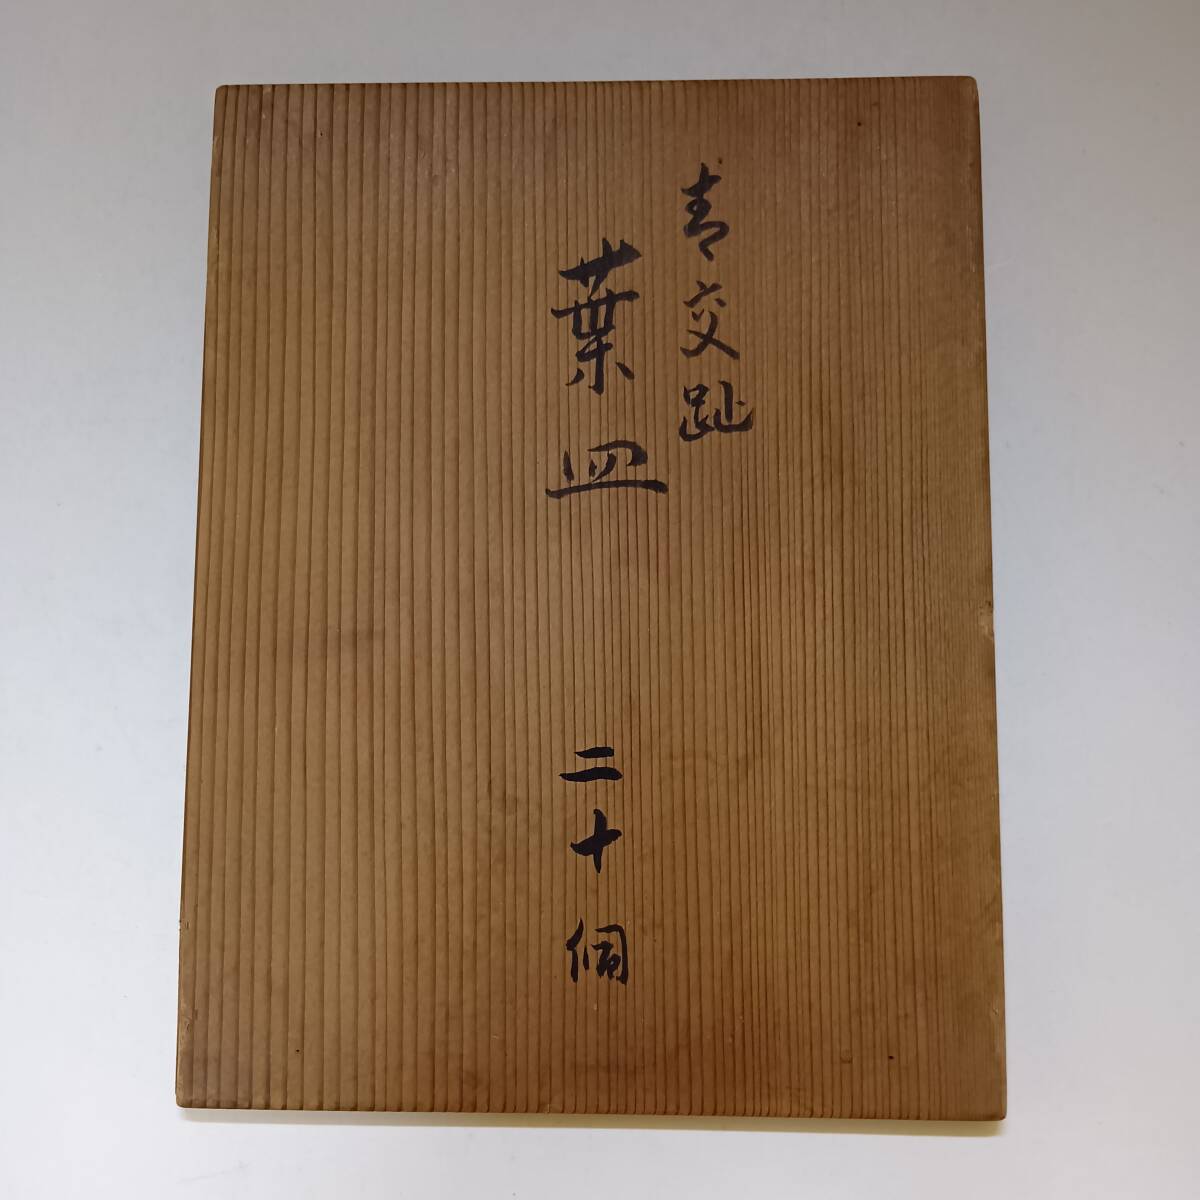 青交趾
葉皿 二十個